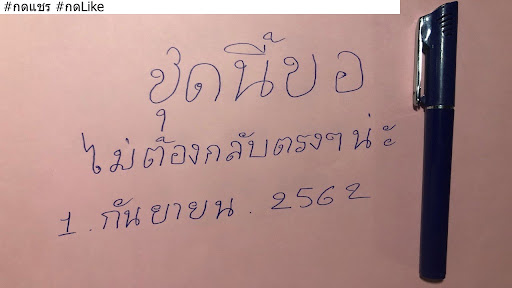 #กดแชร #กดLike
ชุดนี้ขอ
ไม่ต้องกลับตรงๆน่ะ
1.กันยายน.2562